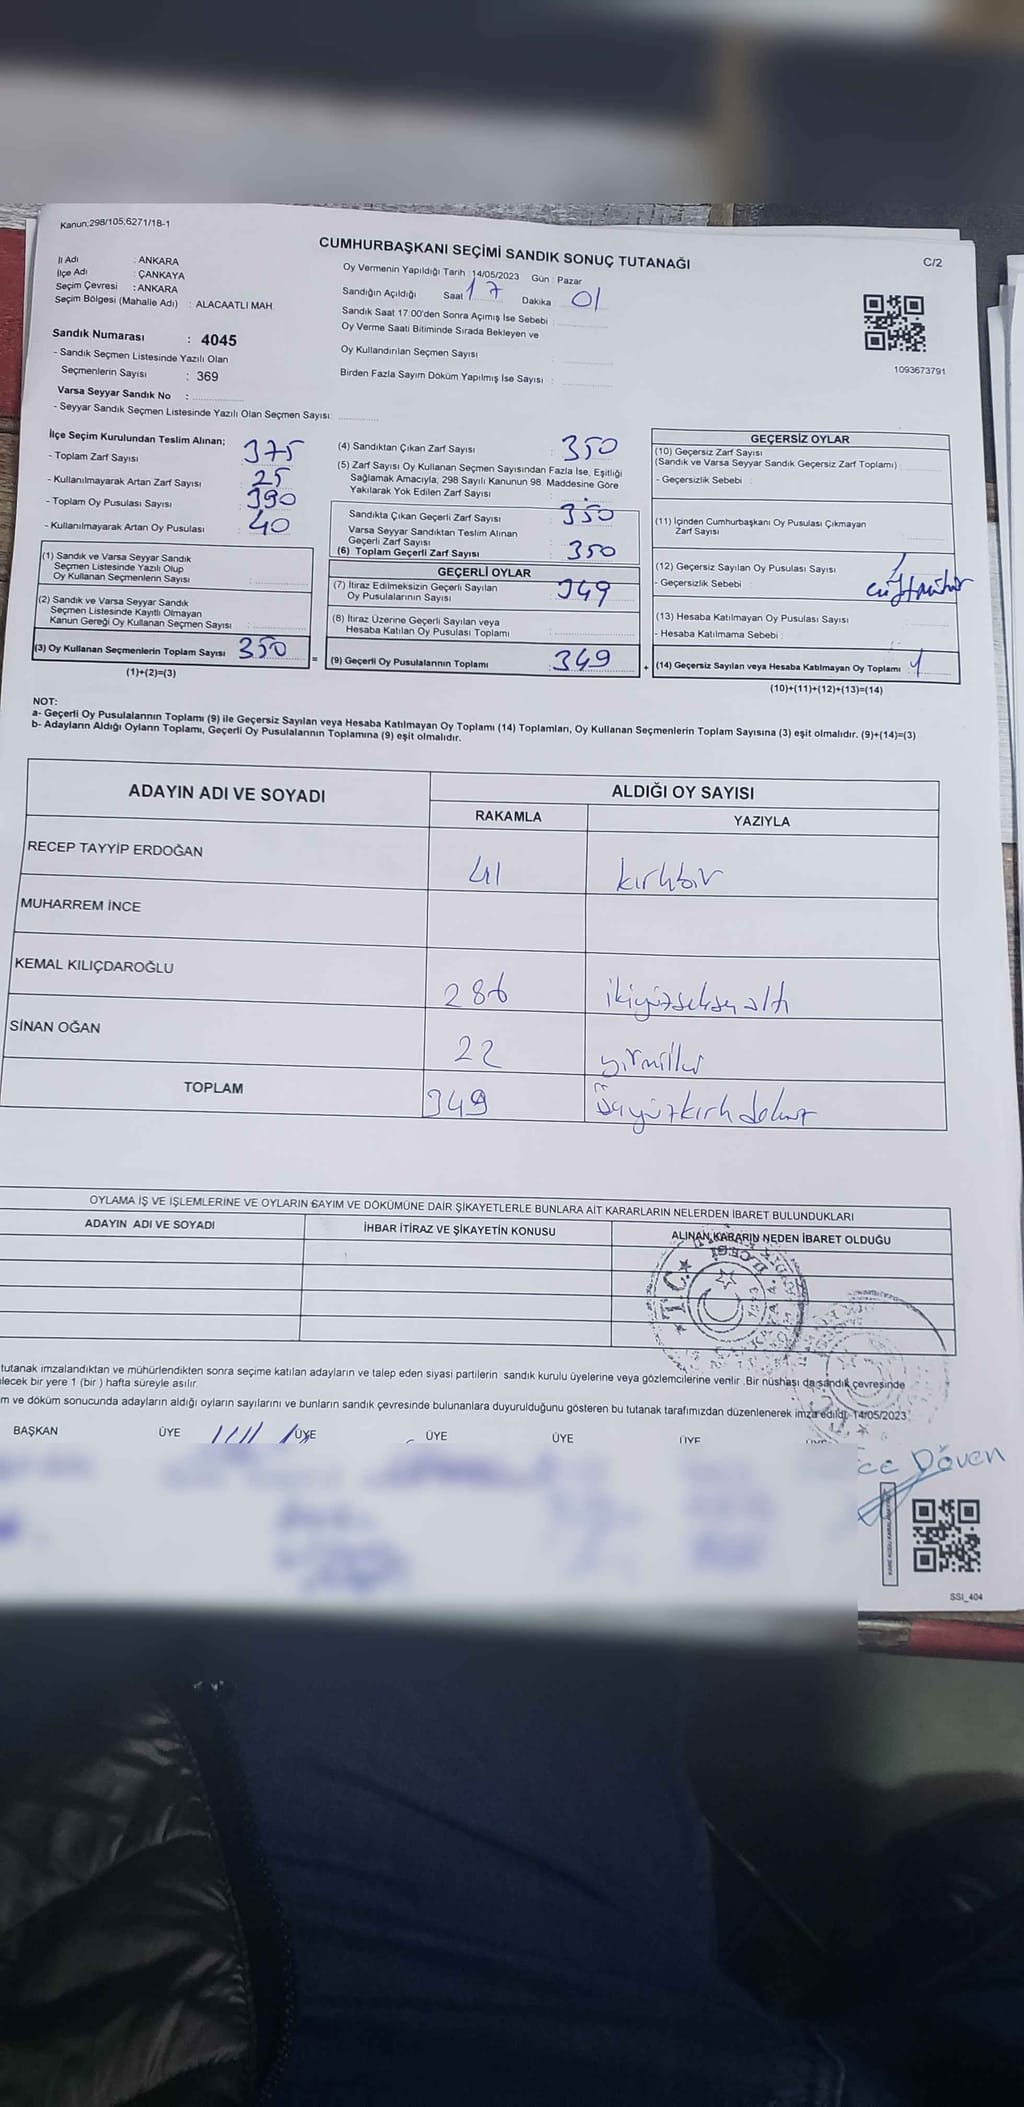 Kanun:298/105;6271/18-1
CUMHURBAŞKANI SEÇİMİ SANDIK SONUÇ TUTANAĞI
C/2
İl Adı : ANKARA
İlçe Adı : ÇANKAYA
Seçim Çevresi : ANKARA
Seçim Bölgesi (Mahalle Adı) : ALACAATLI MAH.
Oy Vermenin Yapıldığı Tarih : 14/05/2023 Gün : Pazar
Sandığın Açıldığı Saat 17 Dakika 01
Sandık Saat 17:00'den Sonra Açımış İse Sebebi :
Oy Verme Saati Bitiminde Sırada Bekleyen ve
Oy Kullandırılan Seçmen Sayısı :
Birden Fazla Sayım Döküm Yapılmış İse Sayısı :
1093673791
Sandık Numarası : 4045
- Sandık Seçmen Listesinde Yazılı Olan
Seçmenlerin Sayısı : 369
Varsa Seyyar Sandık No :
- Seyyar Sandık Seçmen Listesinde Yazılı Olan Seçmen Sayısı:
İlçe Seçim Kurulundan Teslim Alınan;
- Toplam Zarf Sayısı 375
- Kullanılmayarak Artan Zarf Sayısı 25
- Toplam Oy Pusulası Sayısı 390
- Kullanılmayarak Artan Oy Pusulası 40
(1) Sandık ve Varsa Seyyar Sandık
Seçmen Listesinde Yazılı Olup
Oy Kullanan Seçmenlerin Sayısı :
(2) Sandık ve Varsa Seyyar Sandık
Seçmen Listesinde Kayıtlı Olmayan
Kanun Gereği Oy Kullanan Seçmen Sayısı :
(3) Oy Kullanan Seçmenlerin Toplam Sayısı 350
(1)+(2)=(3)
(4) Sandıktan Çıkan Zarf Sayısı : 350
(5) Zarf Sayısı Oy Kullanan Seçmen Sayısından Fazla İse, Eşitliği
Sağlamak Amacıyla, 298 Sayılı Kanunun 98. Maddesine Göre
Yakılarak Yok Edilen Zarf Sayısı :
Sandıkta Çıkan Geçerli Zarf Sayısı : 350
Varsa Seyyar Sandıktan Teslim Alınan
Geçerli Zarf Sayısı :
(6) Toplam Geçerli Zarf Sayısı : 350
GEÇERLİ OYLAR
(7) İtiraz Edilmeksizin Geçerli Sayılan
Oy Pusulalarının Sayısı : 349
(8) İtiraz Üzerine Geçerli Sayılan veya
Hesaba Katılan Oy Pusulası Toplamı :
= (9) Geçerli Oy Pusulalarının Toplamı : 349
GEÇERSİZ OYLAR
(10) Geçersiz Zarf Sayısı
(Sandık ve Varsa Seyyar Sandık Geçersiz Zarf Toplamı) :
- Geçersizlik Sebebi :
(11) İçinden Cumhurbaşkanı Oy Pusulası Çıkmayan
Zarf Sayısı :
(12) Geçersiz Sayılan Oy Pusulası Sayısı : 1
- Geçersizlik Sebebi : çift mühür
(13) Hesaba Katılmayan Oy Pusulası Sayısı :
- Hesaba Katılmama Sebebi :
+ (14) Geçersiz Sayılan veya Hesaba Katılmayan Oy Toplamı : 1
(10)+(11)+(12)+(13)=(14)
NOT:
a- Geçerli Oy Pusulalarının Toplamı (9) ile Geçersiz Sayılan veya Hesaba Katılmayan Oy Toplamı (14) Toplamları, Oy Kullanan Seçmenlerin Toplam Sayısına (3) eşit olmalıdır. (9)+(14)=(3)
b- Adayların Aldığı Oyların Toplamı, Geçerli Oy Pusulalarının Toplamına (9) eşit olmalıdır.
ADAYIN ADI VE SOYADI
ALDIĞI OY SAYISI
RAKAMLA YAZIYLA
RECEP TAYYİP ERDOĞAN 41 kırkbir
MUHARREM İNCE
KEMAL KILIÇDAROĞLU 286 ikiyüzseksenaltı
SİNAN OĞAN 22 yirmiiki
TOPLAM 349 üçyüzkırkdokuz
OYLAMA İŞ VE İŞLEMLERİNE VE OYLARIN SAYIM VE DÖKÜMÜNE DAİR ŞİKAYETLERLE BUNLARA AİT KARARLARIN NELERDEN İBARET BULUNDUKLARI
ADAYIN ADI VE SOYADI İHBAR İTİRAZ VE ŞİKAYETİN KONUSU ALINAN KARARIN NEDEN İBARET OLDUĞU
T.C.
tutanak imzalandıktan ve mühürlendikten sonra seçime katılan adayların ve talep eden siyasi partilerin sandık kurulu üyelerine veya gözlemcilerine verilir. Bir nüshası da sandık çevresinde
lecek bir yere 1 (bir ) hafta süreyle asılır.
m ve döküm sonucunda adayların aldığı oyların sayılarını ve bunların sandık çevresinde bulunanlara duyurulduğunu gösteren bu tutanak tarafımızdan düzenlenerek imza edildi. 14/05/2023
BAŞKAN ÜYE ÜYE ÜYE ÜYE ÜYE
Döven
SSI_404